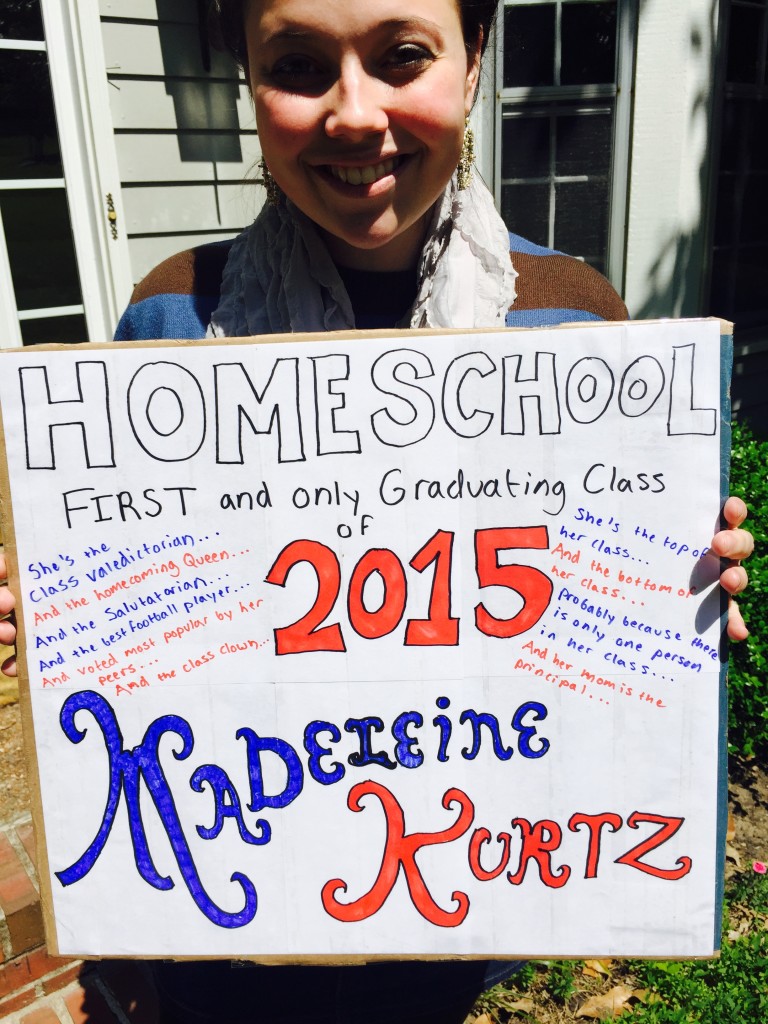 HOMESCHOOL
FIRST and only Graduating Class
of
2015
She's the
class valedictorian...
And the homecoming Queen...
And the Salutatorian...
And the best football player...
And voted most popular by her
peers...
And the class clown...
She's the top of
her class...
And the bottom of
her class...
Probably because there
is only one person
in her class...
And her mom is the
principal...
MADELEINE
KURTZ